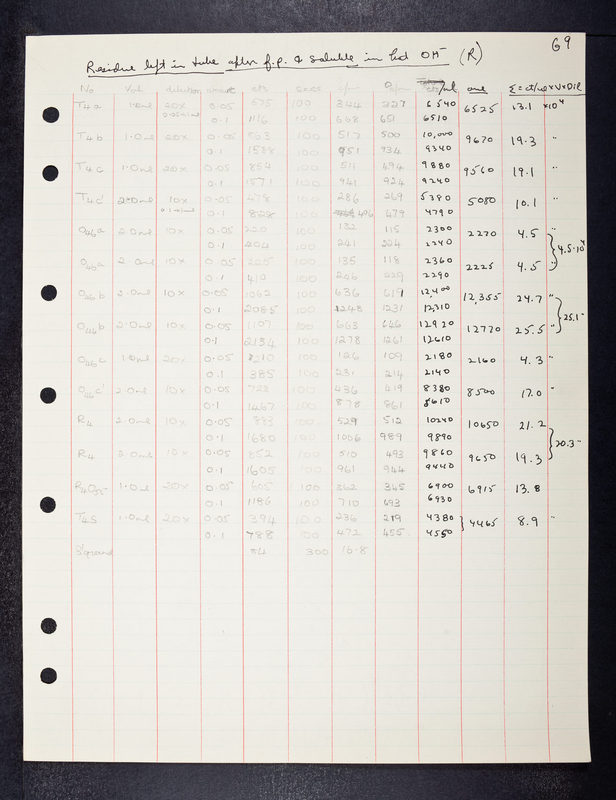 69
Residue left in tube after f.p. & soluble in hot OH⁻ (R)
No Vol dilution amount cts secs c/m cts/ml ave Σ = ct/ml x V x DIL
T4a 1.0ml 20x 0.05 575 100 344 327 6540 6525 13.1 x10⁴
0.1 1116 100 668 651 6510
T4b 1.0ml 20x 0.05 863 100 517 500 10,000 9670 19.3 "
0.1 1588 100 951 934 9340
T4c 1.0ml 20x 0.05 854 100 511 494 9880 9560 19.1 "
0.1 1571 100 941 924 9240
T4c' 2.0ml 10x 0.05 478 100 286 269 5380 5080 10.1 "
0.1 828 100 496 479 4790
O46a 2.0ml 10x 0.05 220 100 132 115 2300 2270 4.5 "
0.1 404 100 241 224 2240
4.5·10⁴
O46a 2.0ml 10x 0.05 225 100 135 118 2360 2225 4.5 "
0.1 412 100 246 229 2290
O46b 2.0ml 10x 0.05 1062 100 636 619 12,400 12,355 24.7 "
0.1 2085 100 1248 1231 12,310
25.1 "
O46b 2.0ml 10x 0.05 1107 100 663 646 12920 12770 25.5 "
0.1 2134 100 1278 1261 12610
O46c 1.0ml 20x 0.05 210 100 126 109 2180 2160 4.3 "
0.1 385 100 231 214 2140
O46c' 2.0ml 10x 0.05 728 100 436 419 8380 8500 17.0 "
0.1 1467 100 878 861 8610
R4 2.0ml 10x 0.05 883 100 529 512 10240 10650 21.2
0.1 1680 100 1006 989 9890
20.3 "
R4 2.0ml 10x 0.05 852 100 510 493 9860 9650 19.3
0.1 1605 100 961 944 9440
1.0ml 20x 0.05 605 100 362 345 6900 6915 13.8
0.1 1186 100 710 693 6930
T4S 1.0ml 20x 0.05 394 100 236 219 4380 4465 8.9 "
0.1 788 100 472 455 4550
B'ground 84 300 16.8